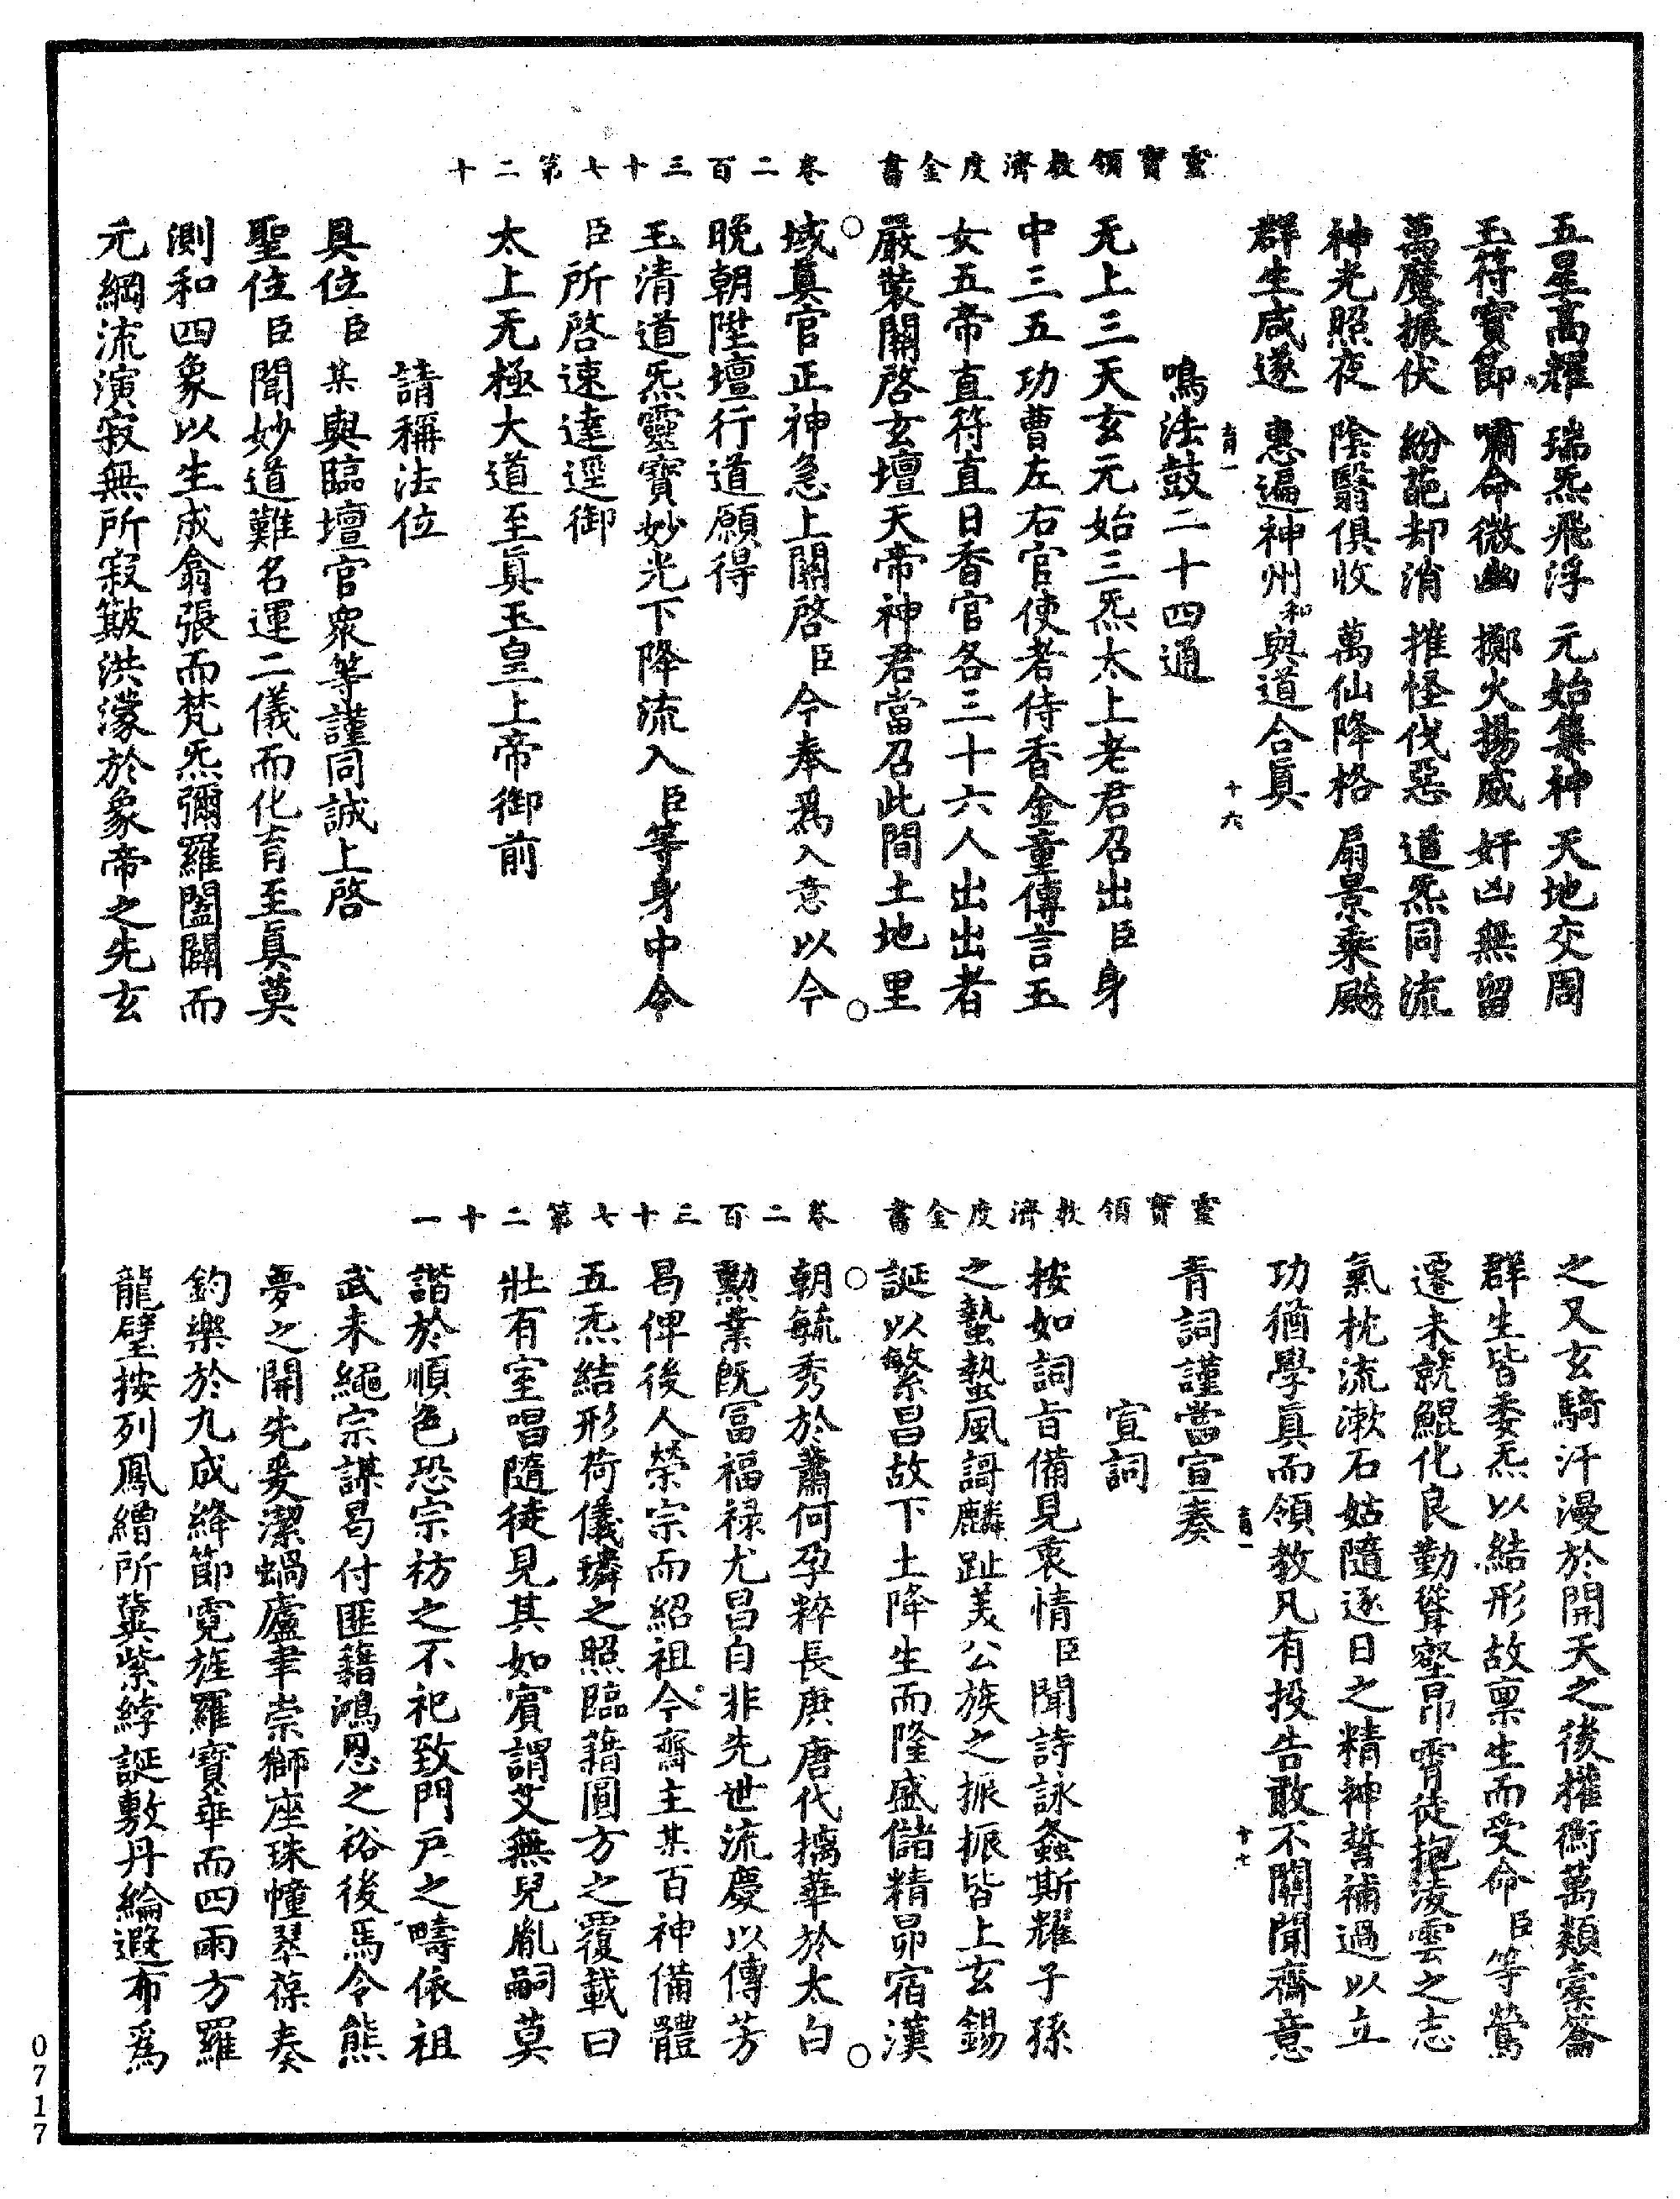 靈寶領教濟度金書　卷二百三十七第二十
五星高耀　瑞炁飛浮　元始集神　天地交周
玉符寶節　嘯命微幽　擲火揚威　奸凶無留
萬魔振伏　紛葩却消　摧怪伐惡　道炁同流
神光照夜　陰翳俱收　萬仙降格　扇景乘飈
群生咸遂　惠遍神州和與道合眞
十六
鳴法鼓二十四通
无上三天玄元始三炁太上老君召出臣身
中三五功曹左右官使者侍香金童傳言玉
女五帝直符直日香官各三十六人出出者
嚴裝關啓玄壇天帝神君當召此間土地里
域眞官正神急上關啓臣今奉爲入意以今
晚朝陞壇行道願得
玉清道炁靈寶妙光下降流入臣等身中令
臣所啓速達逕御
太上无極大道至眞玉皇上帝御前
請稱法位
具位臣某與臨壇官衆等謹同誠上啓
聖位臣聞妙道難名運二儀而化育至眞莫
測和四象以生成翕張而梵炁彌羅闔闢而
元綱流演寂無所寂簸洪濛於象帝之先玄
靈寶領教濟度金書　卷二百三十七第二十一
之又玄騎汗漫於開天之後權衡萬類橐籥
群生皆委炁以結形故禀生而受命臣等鶯
遷未就鯤化良勤聳壑昂霄徒抱淩雲之志
氣枕流漱石姑隨逐日之精神誓補過以立
功猶學眞而領教凡有投告敢不關聞齋意
十七
青詞謹當宣奏
宣詞
按如詞旨備見衷情臣聞詩詠螽斯耀子孫
之蟄蟄風謌麟趾美公族之振振皆上玄錫
誕以繁昌故下土降生而隆盛儲精昴宿漢
朝毓秀於蕭何孕粹長庚唐代摛華於太白
勳業旣冨福禄尤昌自非先世流慶以傳芳
曷俾後人榮宗而紹祖今齋主某百神備體
五炁結形荷儀璘之照臨藉圓方之覆載曰
壯有室唱隨徒見其如賓謂艾無兒胤嗣莫
諧於順色恐宗枋之不祀致門戸之疇依祖
武未繩宗謀曷付匪藉鴻恩之裕後馬令熊
夢之開先爰潔蝸廬聿崇獅座珠幢翠葆奏
鈞樂於九成絳節霓旌羅寶華而四雨方羅
龍璧按列鳳繒所冀紫綍誕敷丹綸遐布爲
0717